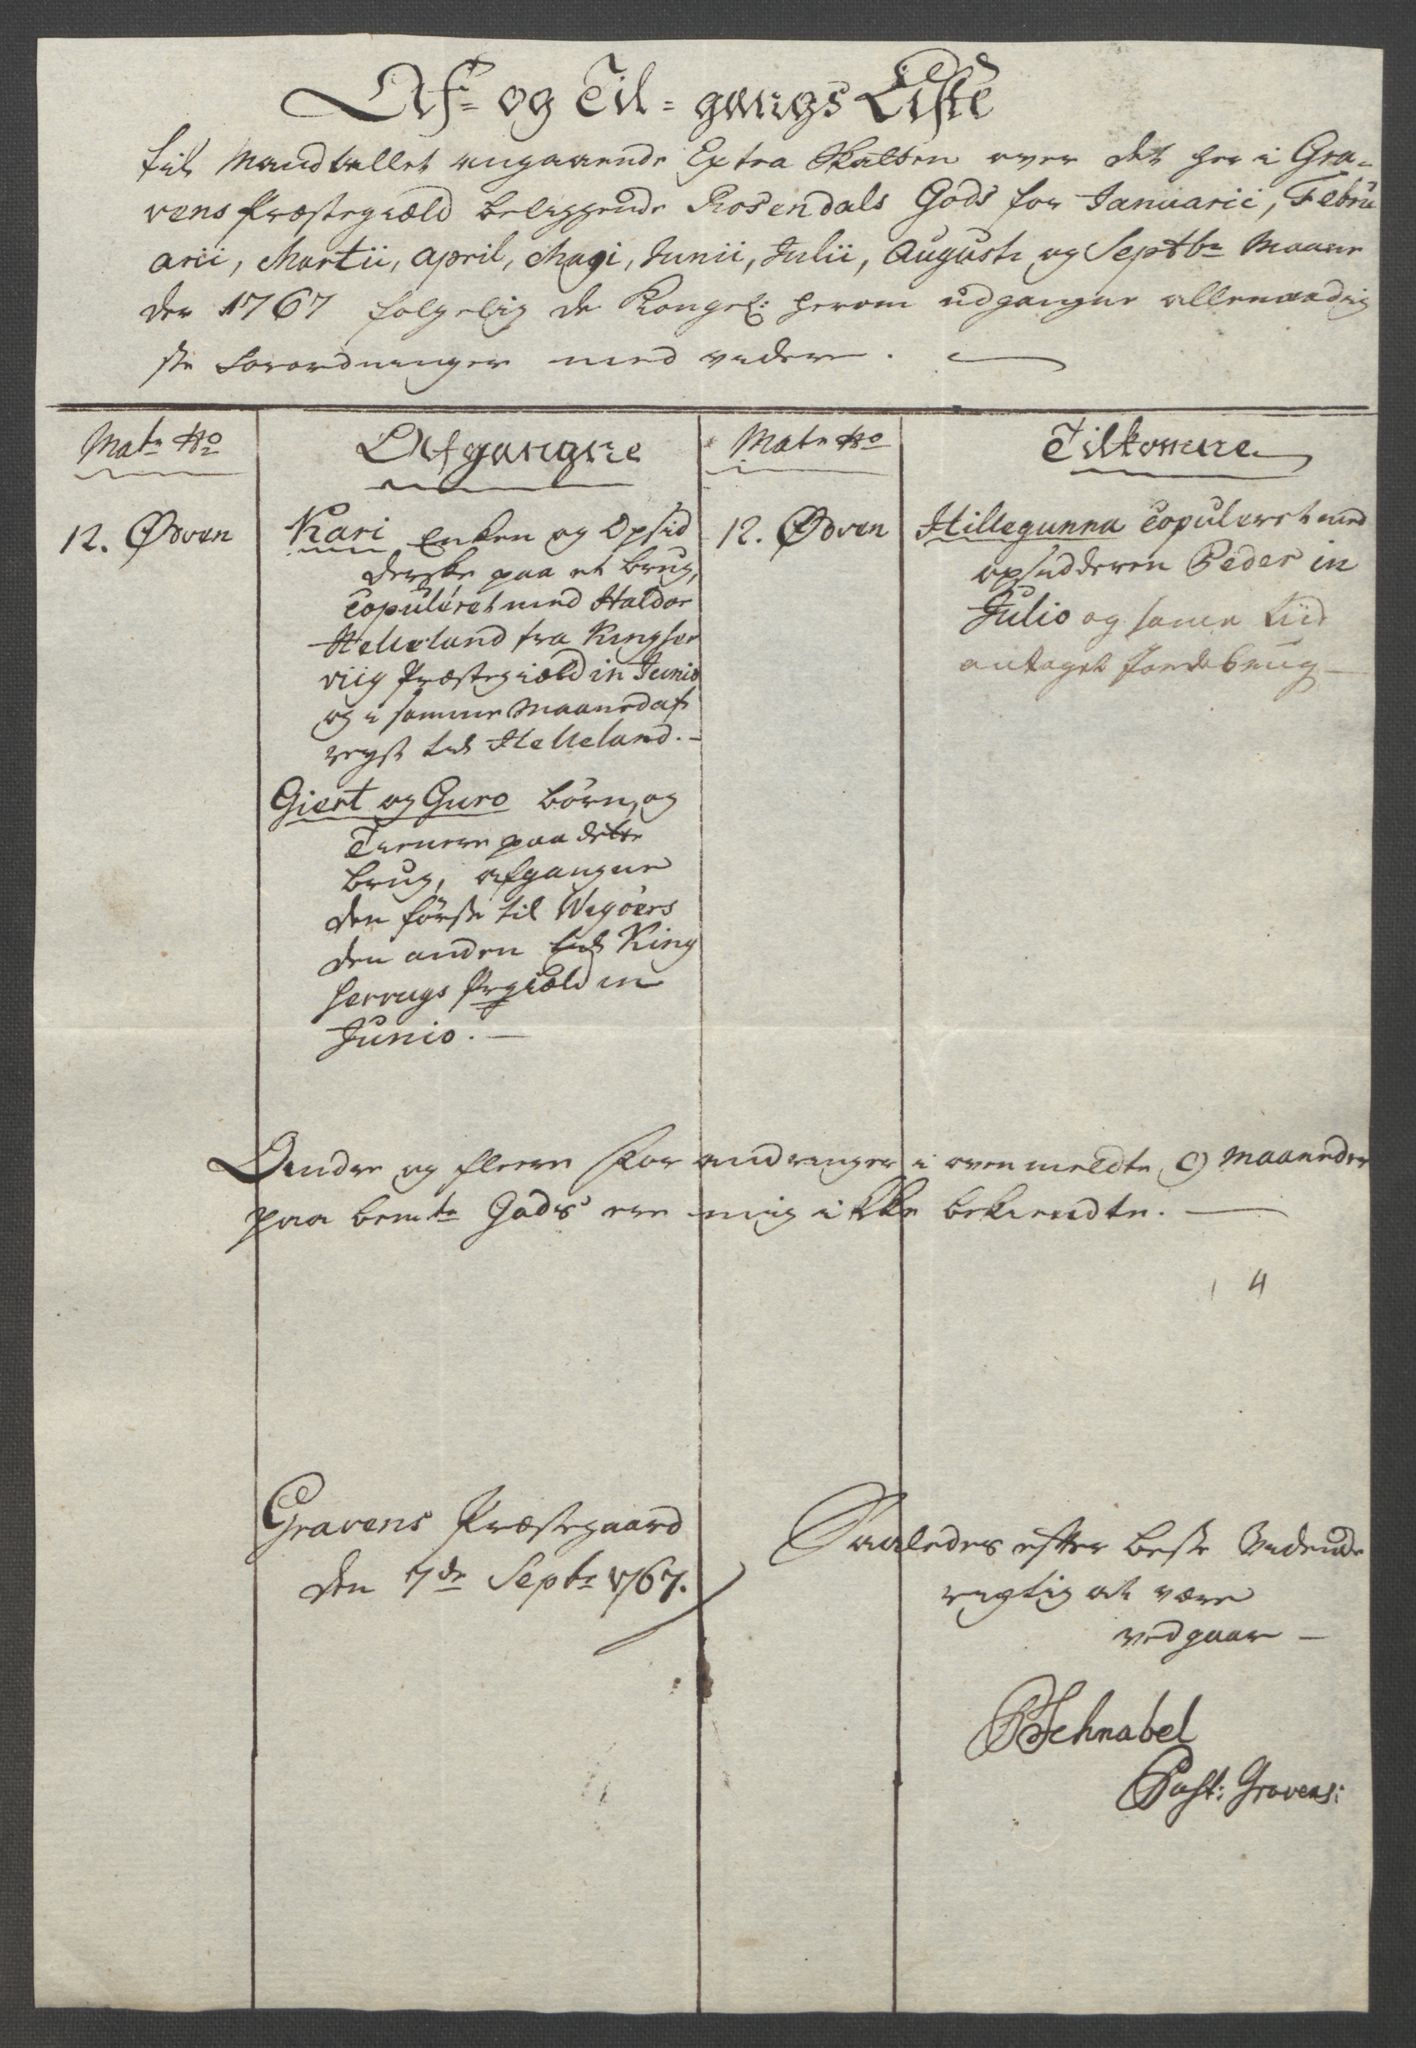 Af- og Til-gangs Liste
til Mandtallet angaaende Extra Skatten over det her i Gra-
vens Præstegiæld beliggende Rosendals Gods for Januarii, Febru
arii, Martii, April, Maji, Junii, Julii, Augusti og Septbr Maane
der 1767 følgelig de Kongel: herom udgangne allernaadig
ste Forordninger med videre.
Matr No
Afgangne
Matr No
Tilkomne
12. Ødven
Kari Enken og Opsid
derske paa et brug,
copuleret med Haldor
Helleland fra Kingser
viig Præstegiæld in Junio
og i samme Maaned af
reyst til Helleland.
Giert og Guro børn, og
Tienere paa dette
brug, afgangne
den første til Wigøers
den anden til King
servigs Prgiæld in
Junio.
12. Ødven
Hillegunna copuleret med
opsidderen Peder in
Julio og samme Tiid
antaget Jordebrug
Andre og fleere Forandringer i ovenmeldte 9 Maaneder
paa bemte Gods ere mig ikke bekiendte.
4
Gravens Præstegaard
den 7de Septbr 1767.
Saaledes efter beste Vidende
rigtig at være
vedgaar
Schnabel
Past: Gravens: